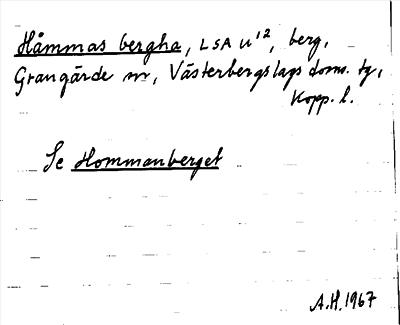 Håmmas bergha, LSA U¹², berg,
Grangärde sn, Västerbergslags doms. tg,
Kopp. l.
Se Hommanberget
A.H. 1967